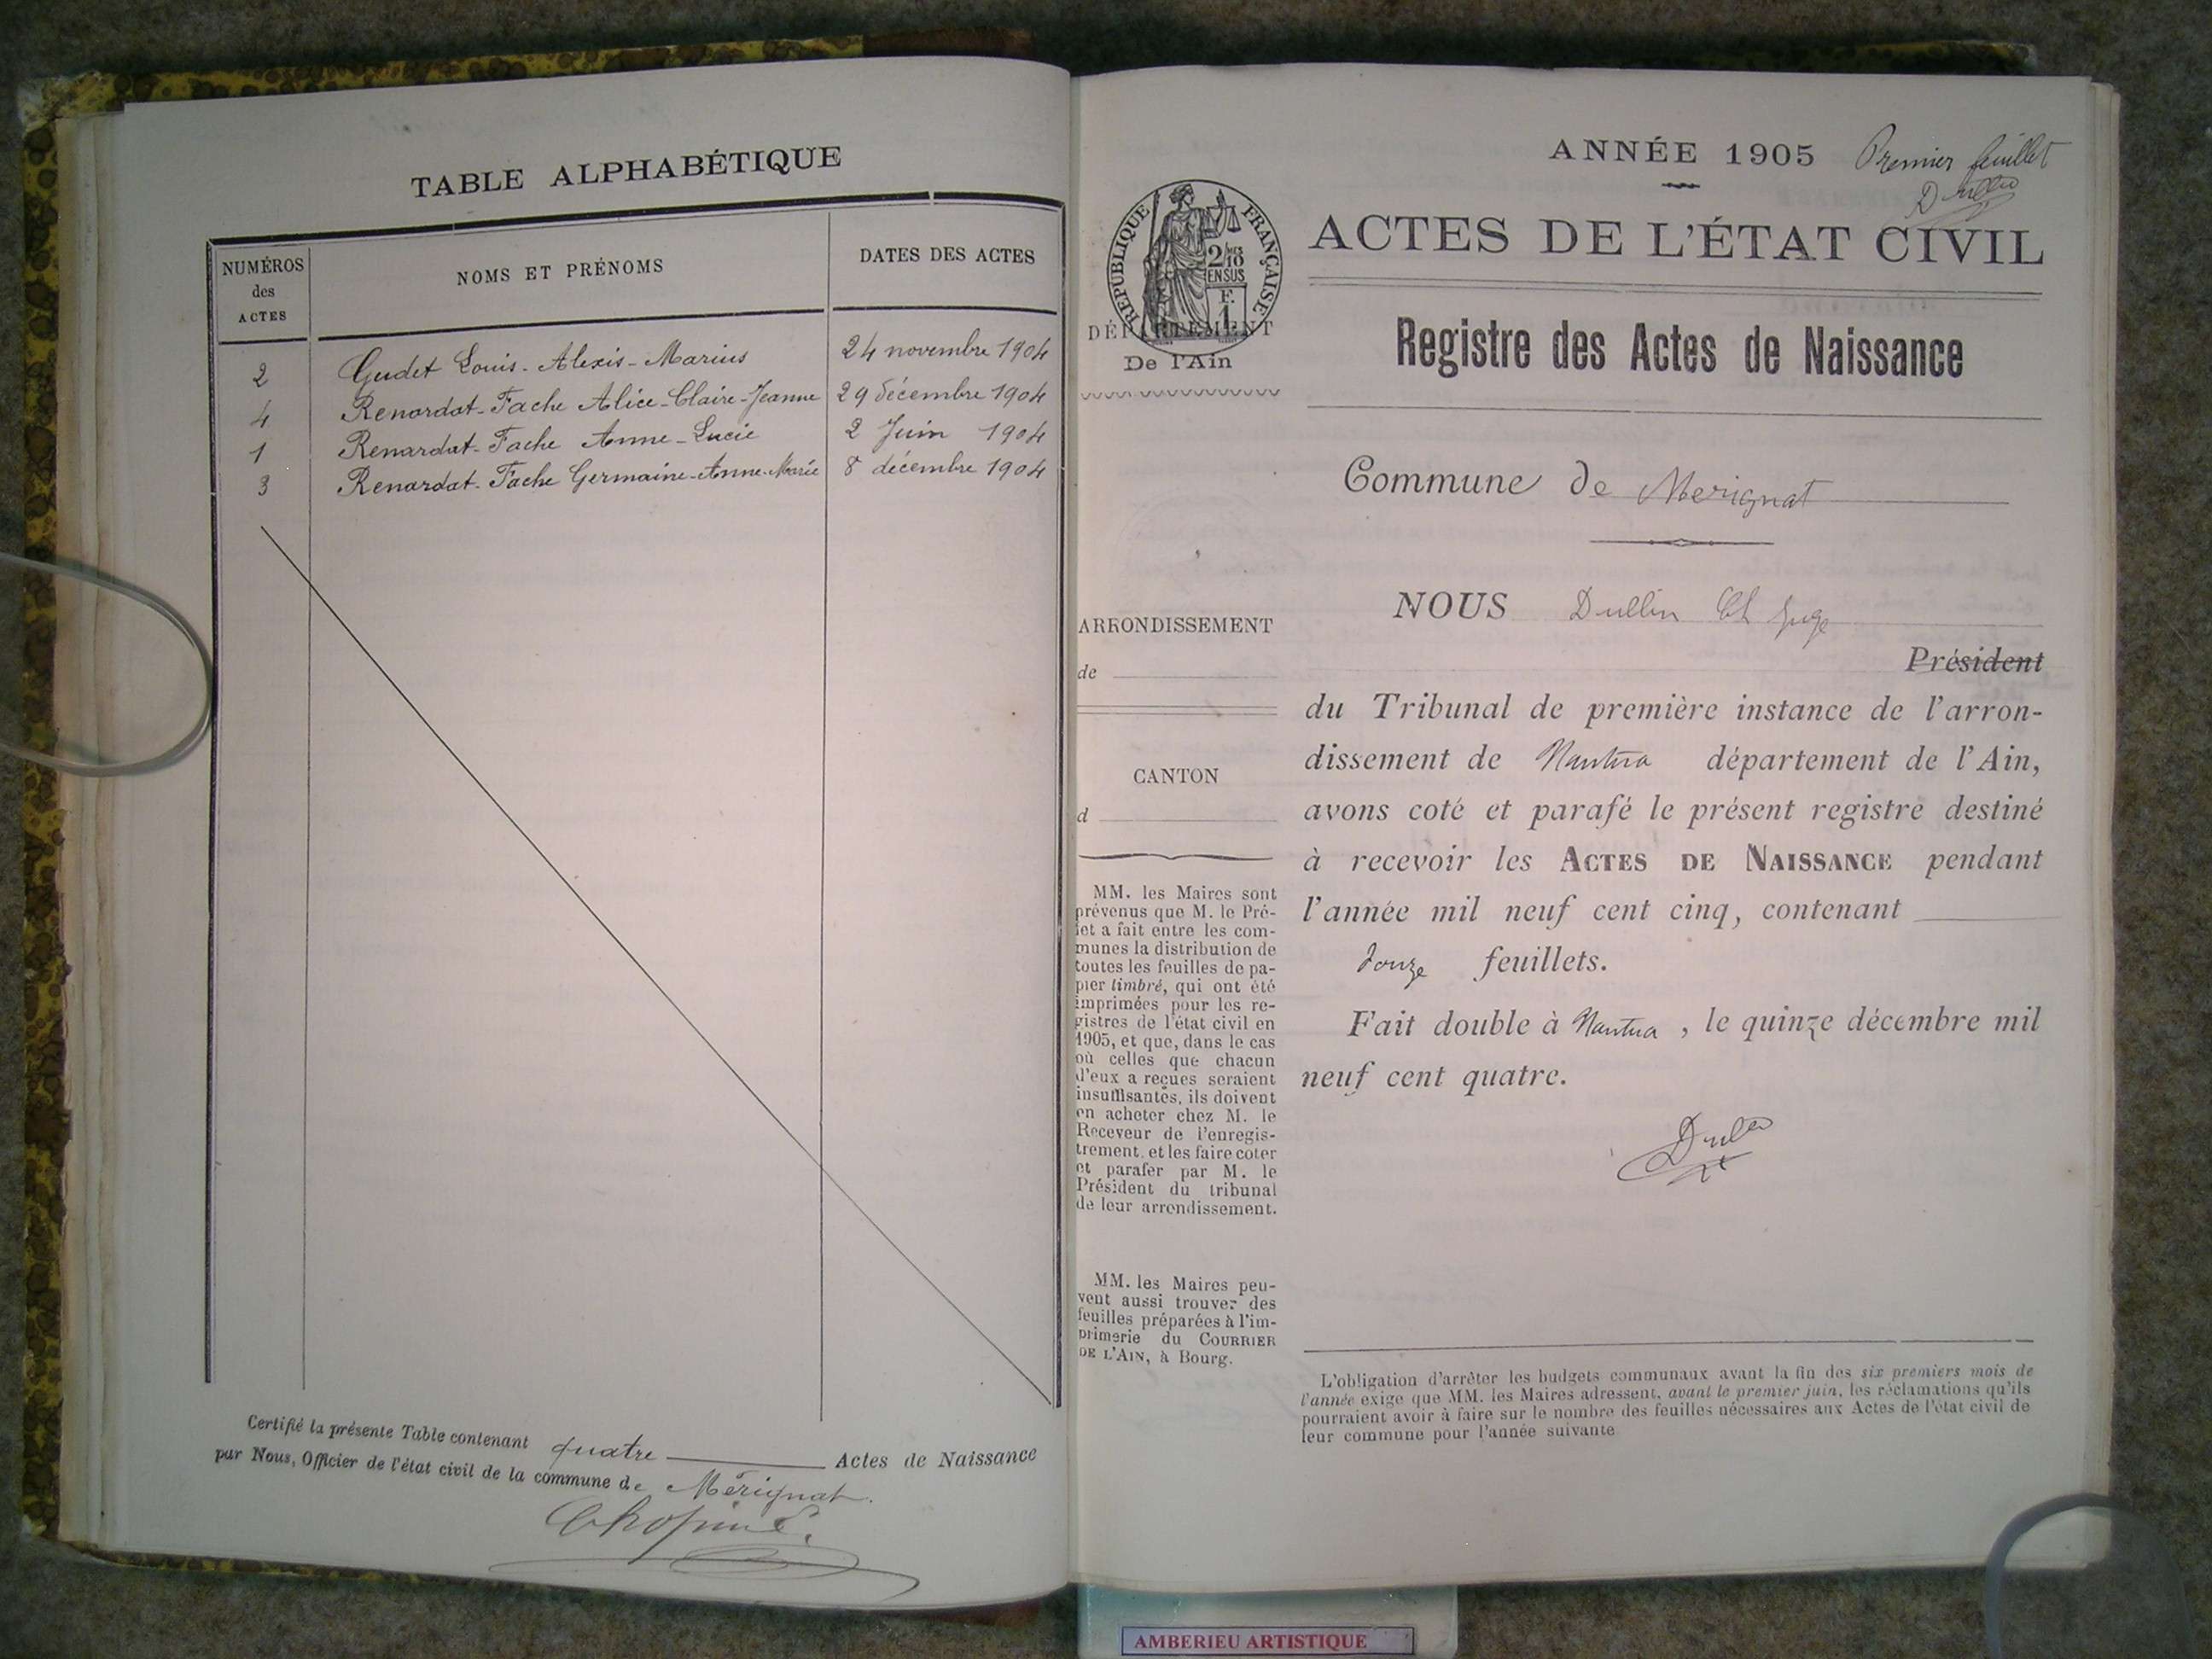 TABLE ALPHABÉTIQUE
NUMÉROS
des
ACTES
NOMS ET PRÉNOMS
DATES DES ACTES
2 Gudet Louis-Alexis-Marius 24 novembre 1904
4 Renardat-Fache Alice-Claire-Jeanne 29 décembre 1904
1 Renardat-Fache Anne-Lucie 2 Juin 1904
3 Renardat-Fache Germaine-Anne-Marie 8 décembre 1904
Certifié la présente Table contenant quatre Actes de Naissance
par Nous, Officier de l'état civil de la commune de Mérignat.
ANNÉE 1905 Premier feuillet
ACTES DE L'ÉTAT CIVIL
RÉPUBLIQUE FRANÇAISE
2/10
EN SUS
F.
1
DÉPARTEMENT
De l'Ain
Registre des Actes de Naissance
Commune de Merignat
ARRONDISSEMENT
de
CANTON
d
MM. les Maires sont
prévenus que M. le Pré-
fet a fait entre les com-
munes la distribution de
toutes les feuilles de pa-
pier timbré, qui ont été
imprimées pour les re-
gistres de l'état civil en
1905, et que, dans le cas
où celles que chacun
d'eux a reçues seraient
insuffisantes, ils doivent
en acheter chez M. le
Receveur de l'enregis-
trement, et les faire coter
et parafer par M. le
Président du tribunal
de leur arrondissement.
MM. les Maires peu-
vent aussi trouver des
feuilles préparées à l'im-
primerie du COURRIER
DE L'AIN, à Bourg.
NOUS Dullin Ch Juge
Président
du Tribunal de première instance de l'arron-
dissement de Nantua département de l'Ain,
avons coté et parafé le présent registre destiné
à recevoir les ACTES DE NAISSANCE pendant
l'année mil neuf cent cinq, contenant
feuillets.
Fait double à Nantua, le quinze décembre mil
neuf cent quatre.
L'obligation d'arrêter les budgets communaux avant la fin des six premiers mois de
l'année exige que MM. les Maires adressent, avant le premier juin, les réclamations qu'ils
pourraient avoir à faire sur le nombre des feuilles nécessaires aux Actes de l'état civil de
leur commune pour l'année suivante
AMBERIEU ARTISTIQUE